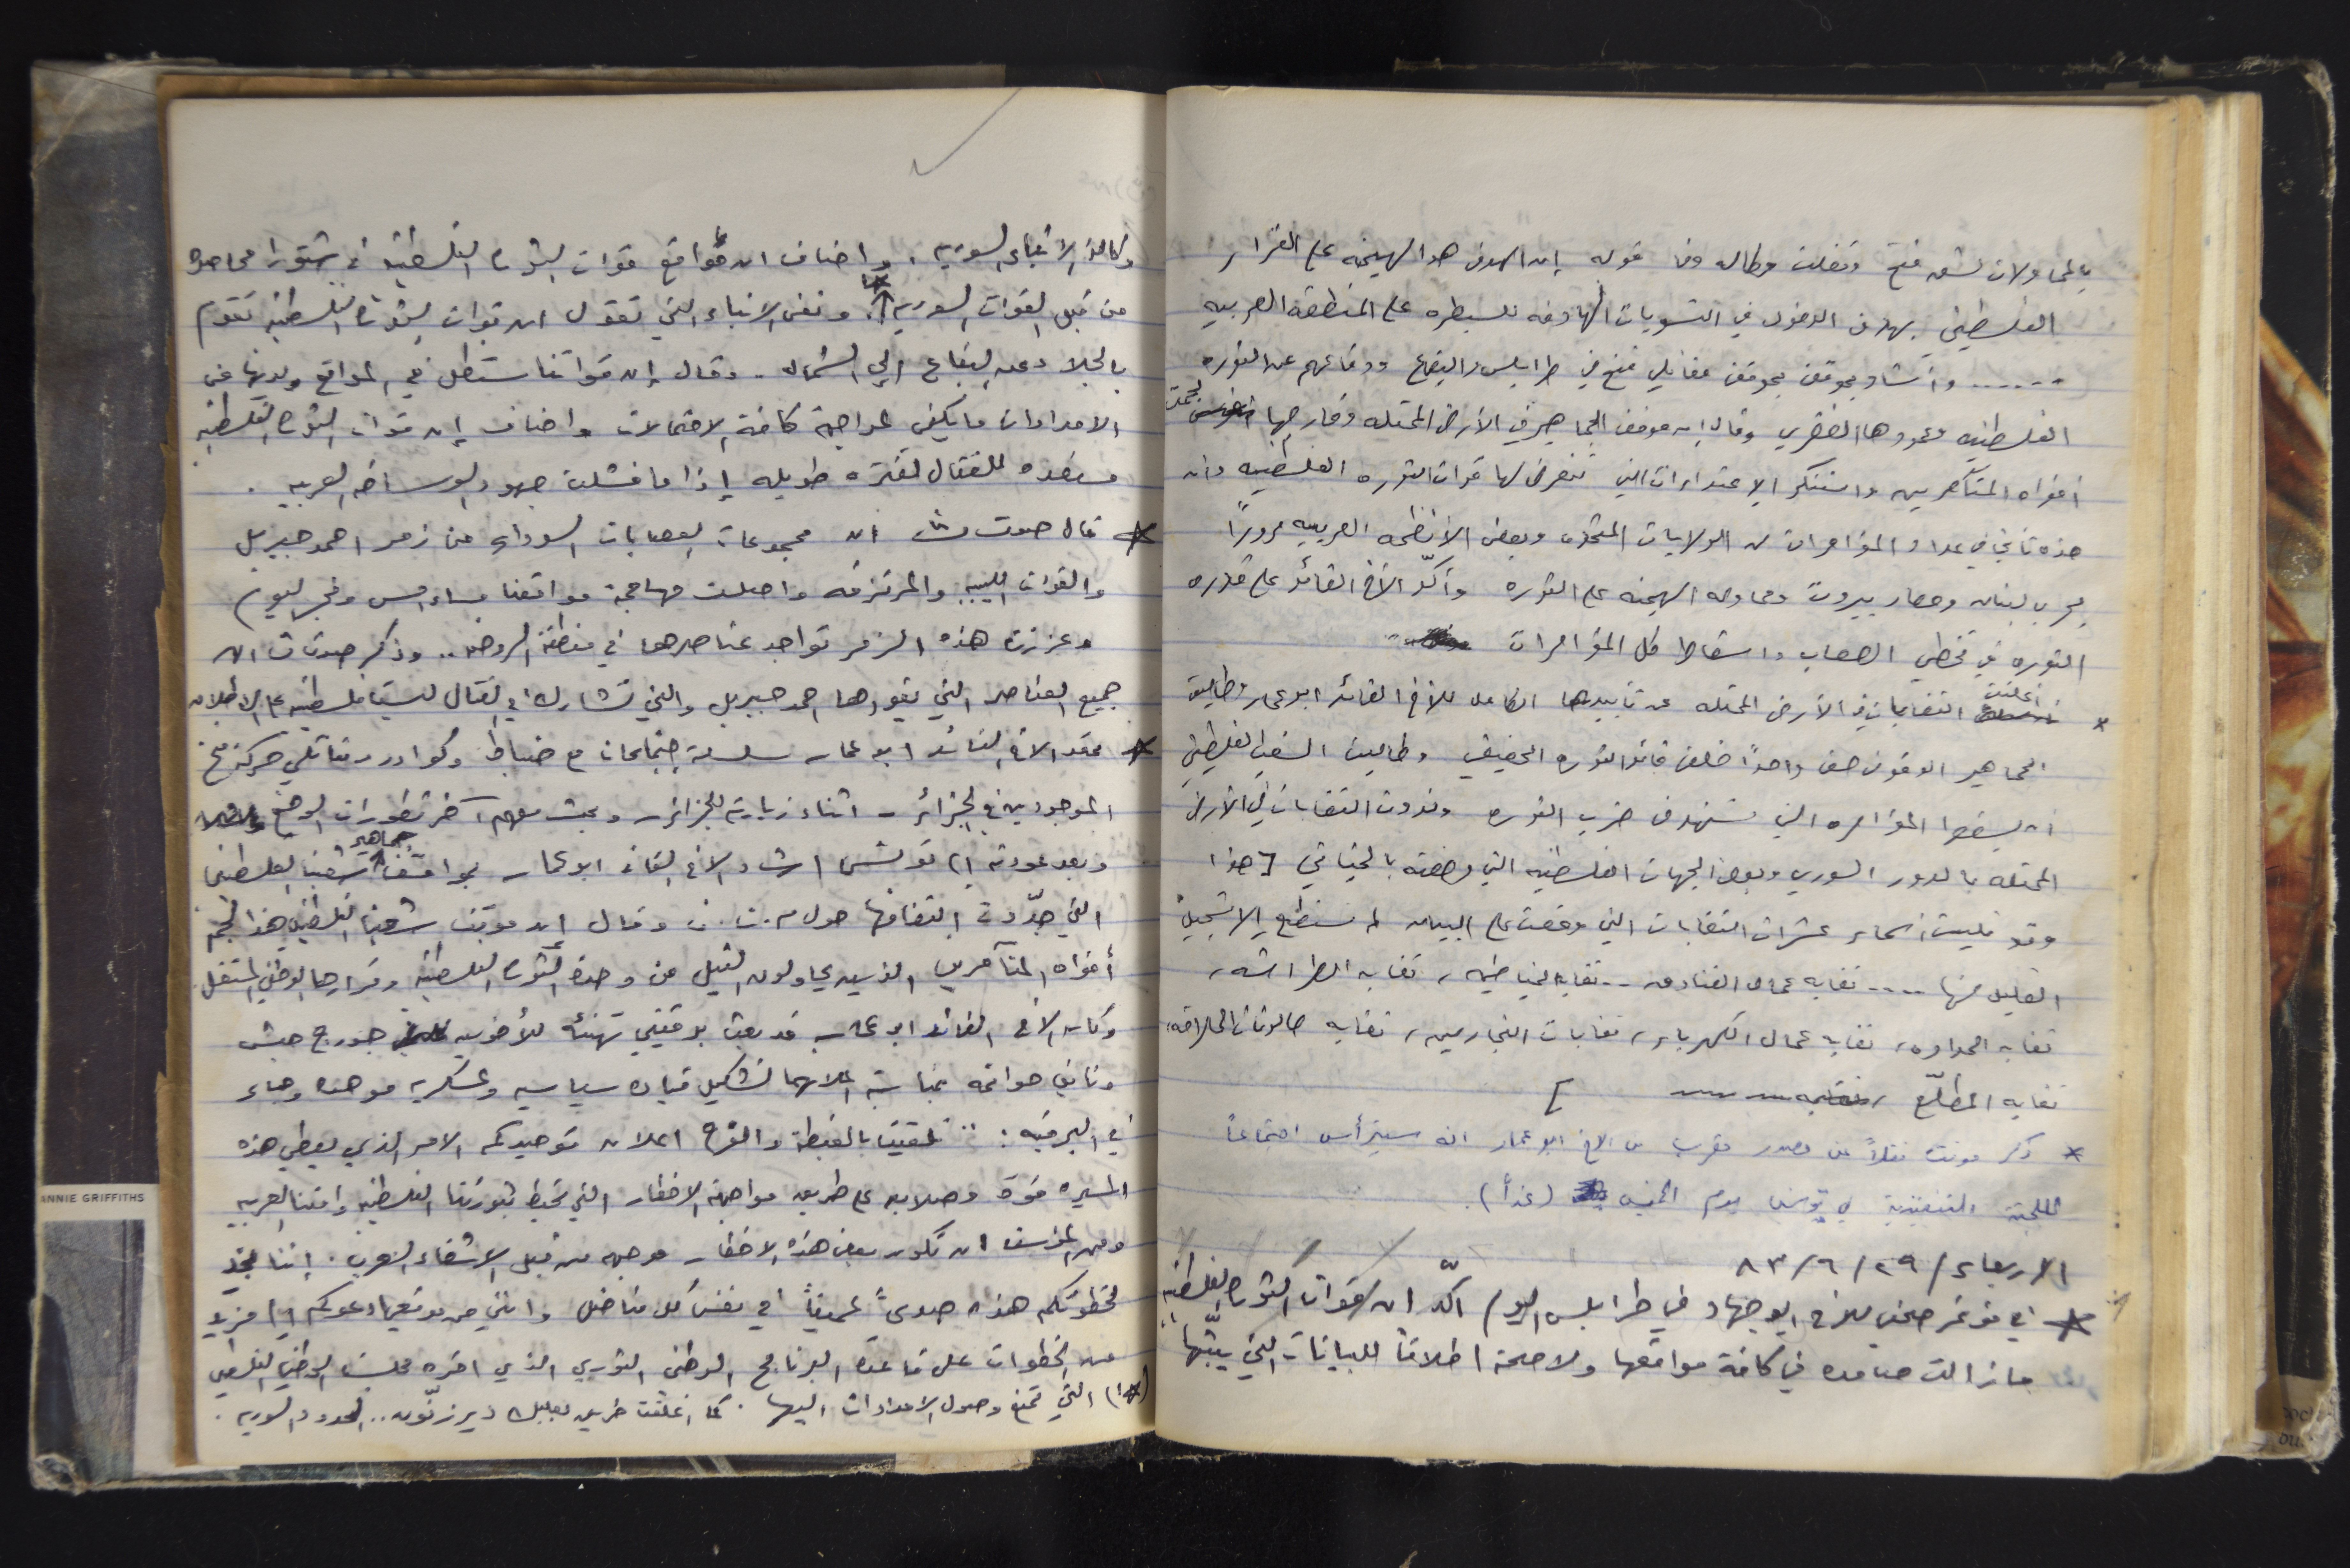 بالمحاولات لشق فتح ونقلت وكاله وفا قوله إن الهدف هو الهيمنه على القرار
الفلسطيني بهدف الدخول في التسويات الهادفه للسيطره على المنطقه العربيه
...... وأشاد بموقف بموقف مقاتلي فتح في طرابلس والبقاع ودفاعهم عن الثوره
الفلسطينيه وعمودها الفقري وقال إن موقف الجماهير في الأرض المحتله وخارجها أخرس لجمت
أفواه المتآمرين واستنكر الاعتداءات التي تتعرض لها قوات الثوره الفلسطينيه وان
هذه تأتي في عداد المؤامرات من الولايات المتحده وبعض الأنظمه العربيه مروراً
بحرب لبنان وحصار بيروت ومحاوله الهيمنه على الثوره وأكّد الأخ القائد على قدره
الثوره في تخطي الصعاب واسقاط كل المؤامرات
* أعلنت النقابات في الأرض المحتله عن تأييدها الكامل للأخ القائد ابو عمار وطالبت
الجماهير الوقوف صف واحداً خلف قائد الثوره الحقيقي وطالبت الشعب الفلسطيني
ان يسقط المؤامره التي تستهدف ضرب الثوره ونددت النقابات في الأرض
المحتله بالدور السوري وبعض الجهات الفلسطينيه التي وصفته بالخياني [ هذا
وقد تليت أسماء عشرات النقابات التي وقعت على البيان لم نستطع الا تسجيل
القليل منها .... نقابه عمال الفنادق .. نقابه الخياطين، نقابه الطراشه،
نقابه الحداده، نقابه عمال الكهرباء، نقابات النجارين، نقابه صالونات الحلاقه،
نقابه المطلّع ]
* ذكر مونت نقلاً عن مصدر مقرب من الاخ ابو عمار انه سيترأس اجتماعاً
للجنة التنفيذية في تونس يوم الخميس (غداً).
الاربعاء / ٢٩ / ٦ / ٨٣
* في مؤتمر صحفي للأخ ابو جهاد في طرابلس اليوم أكّد ان قوات الثورة الفلسطينيه
ما زالت صامده في كافة مواقعها ولا صحة اطلاقاً للبيانات التي يبثّها
وكالة الأنباء السورية. واضاف ان مواقع قوات الثورة الفلسطينية في شتورا محاصره
من قبل القوات السورية. ونفى الانباء التي تقول ان قوات الثورة الفلسطينيه تقوم
بالجلاء عن البقاع الى الشمال. وقال إن قواتنا ستظل في المواقع ولديها من
الامدادات ما يكفي لمواجهة كافة الاحتمالات واضاف إن قوات الثورة الفلسطينيه
مستعده للقتال لفتره طويله إذا ما فشلت جهود الوساطه العربيه.
* قال صوت ان مجموعات العصابات السوداء من زمر احمد جبريل
والقوات الليبيه والمرتزقه واصلت مهاجمة مواقعنا مساء امس وفجر اليوم
وعززت هذه الزمر تواجد عناصرها في منطقة الروضه.. وذكر صوت ان
جميع العناصر التي يقودها احمد جبريل والتي تشارك في القتال ليست فلسطينيه على الاطلاق
* عقد الاخ القائد ابو عمار سلسلة اجتماعات مع ضباط وكوادر ومقاتلي حركة فتح
الموجودين في الجزائر - اثناء زيارته للجزائر - وبحث معهم آخر تطورات الوضع
وبعد عودته إلى تونس اشاد الاخ القائد ابو عمار بمواقف جماهير شعبنا الفلسطيني
التي جدّدت إلتفافها حول م.ت.ف وقال ان موقف شعبنا الفلسطيني هذا لجم
أفواه المتآمرين الذين يحاولون النيل من وحدة الثورة الفلسطينيه وقرارها الوطني المستقل.
وكان الاخ القائد ابو عمار قد بعث برقيتي تهنئه للأخوين جورج حبش
ونايف حواتمه بمناسبة اعلانهما تشكيل قياده سياسيه وعسكريه موحده وجاء
في البرقيه: تلقينا بالغبطة والفرح اعلان توحيدكم الامر الذي يعطي هذه
المسيره قوة وصلابه على طريق مواجهة الاخطار التي تحيط بثورتنا الفلسطينيه وامتنا العربيه
ومن المؤسف ان تكون بعض هذه الاخطار موجهه من قبل الاشقاء العرب. إننا نجد
لخطوتكم هذه صدىً عميقاً في نفس كل مناضل وانني من موقعي ادعوكم إلى مزيد
من الخطوات على قاعدة البرنامج الوطني الثوري الذي اقره مجلسنا الوطني الفلسطيني
(*١) التي تمنع وصول الامدادات اليها. كما اغلقت طريق بعلبك ديرزنون.. الحدود السوريه.
ANNIE GRIFFITHS